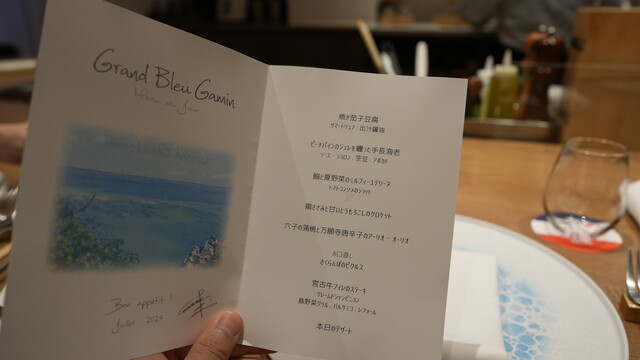 Grand Bleu Gamin
Menu du Jour
Bon appétit !
Juillet 2024
焼き茄子豆腐
サマートリュフ . 出汁醤油
ピーチパインのジュレを纏った手長海老
ソース・シャロン . 空豆 . アボカド
鮎と夏野菜のミルフィーユテリーヌ
トマトコンソメのシャット
鶏ささみと甘いとうもろこしのクロケット
穴子の蒲焼と万願寺唐辛子のアーリオ・オーリオ
お口直し
さくらんぼのピクルス
宮古牛フィレのステーキ
クレームドシャンピニョン
島野菜グリル . バルサミコ . レフォール
本日のデザート